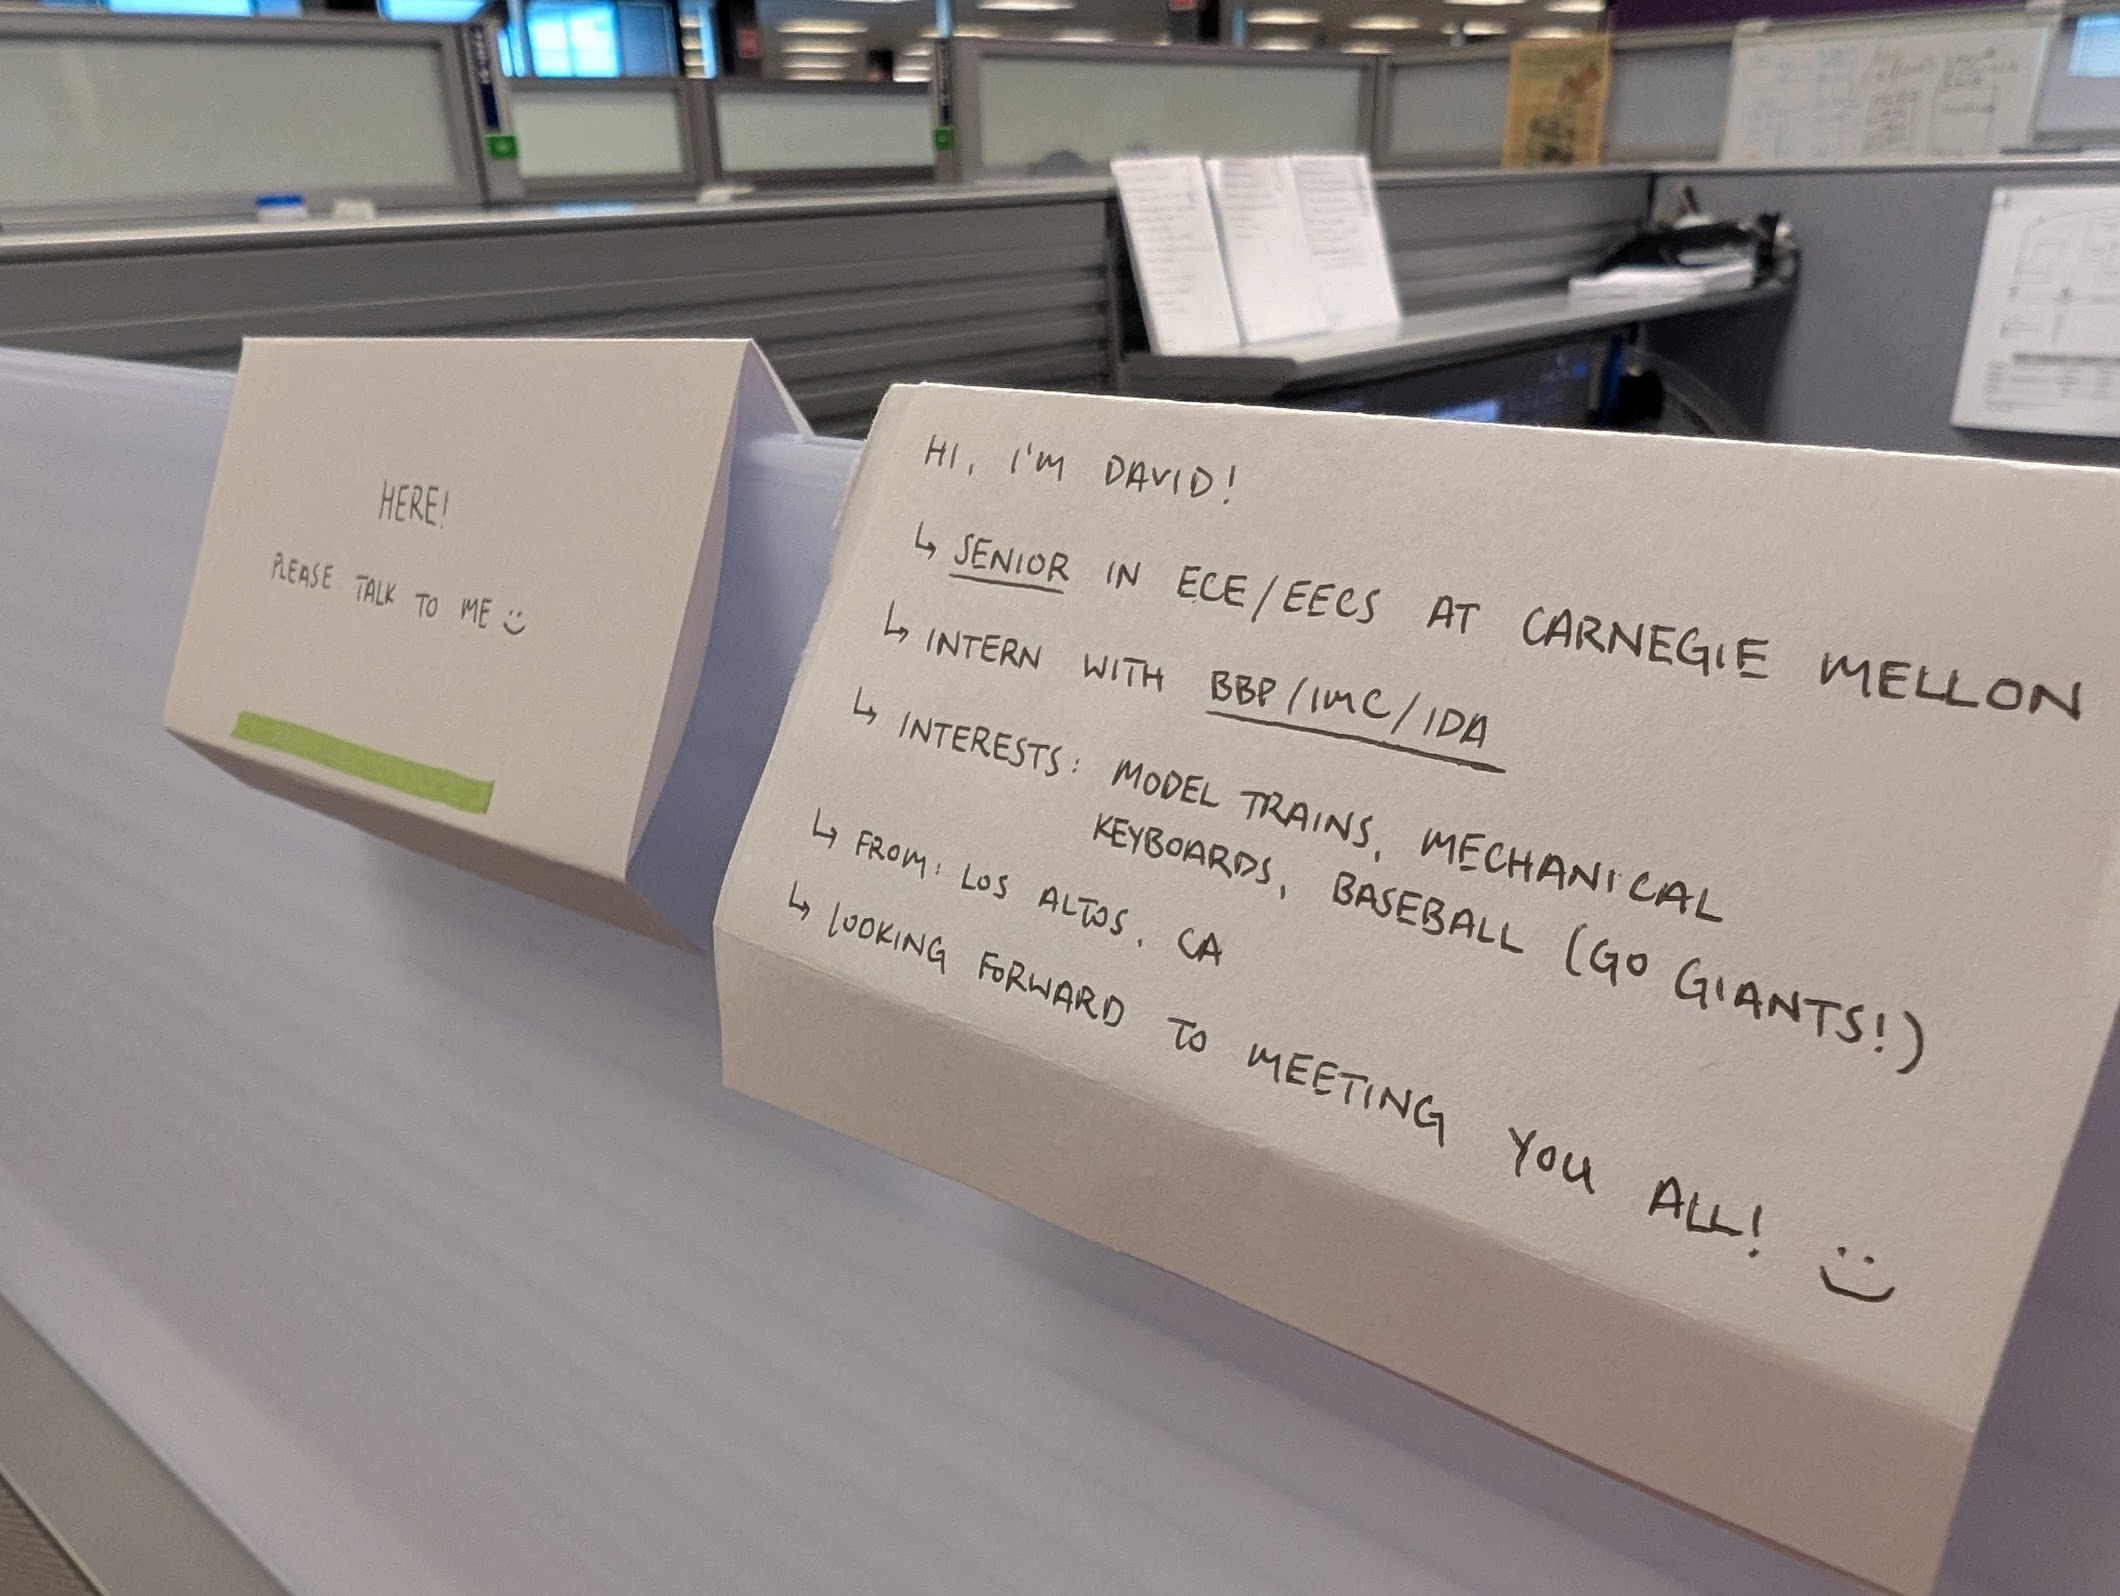 HERE!
PLEASE TALK TO ME
HI, I'M DAVID!
↳ SENIOR IN ECE/EECS AT CARNEGIE MELLON
↳ INTERN WITH BBP/IMC/IDA
↳ INTERESTS: MODEL TRAINS, MECHANICAL
KEYBOARDS, BASEBALL (GO GIANTS!)
↳ FROM: LOS ALTOS, CA
↳ LOOKING FORWARD TO MEETING YOU ALL! :)